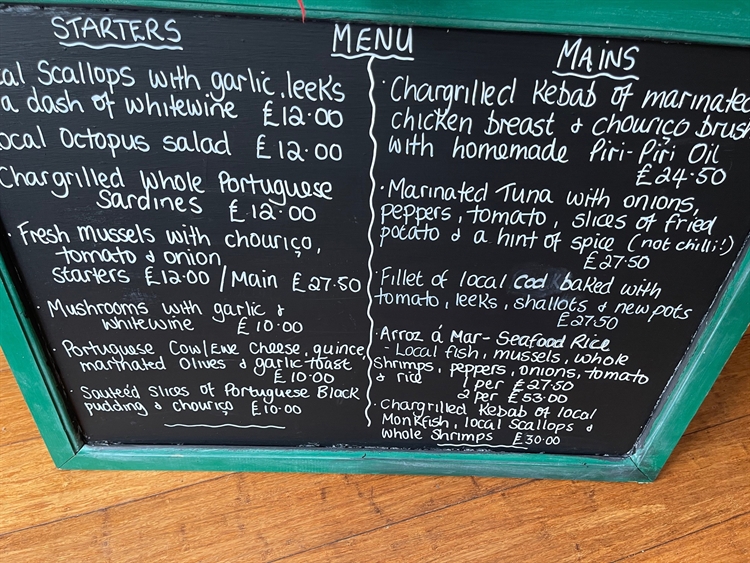 MENU
STARTERS
al Scallops with garlic, leeks
a dash of whitewine £12.00
ocal Octopus salad £12.00
Chargrilled Whole Portuguese
Sardines £12.00
· Fresh mussels with chouriço,
tomato & onion
starters £12.00 / Main £27.50
· Mushrooms with garlic &
whitewine £10.00
· Portuguese Cow/Ewe Cheese, quince,
marinated Olives & garlic toast
£10.00
· Sauteéd Slices of Portuguese Black
pudding & chouriço £10.00
MAINS
· Chargrilled Kebab of marinated
chicken breast & chouriço brush
with homemade Piri-Piri Oil
£24.50
· Marinated Tuna with onions,
peppers, tomato, slices of fried
potato & a hint of spice (not chilli!)
£27.50
· Fillet of local Cod baked with
tomato, leeks, shallots & new pots
£27.50
· Arroz á Mar - Seafood Rice
- Local fish, mussels, whole
Shrimps, peppers, onions, tomato
& rice 1 per £27.50
2 per £53.00
· Chargrilled Kebab of local
Monkfish, local Scallops &
whole Shrimps £30.00